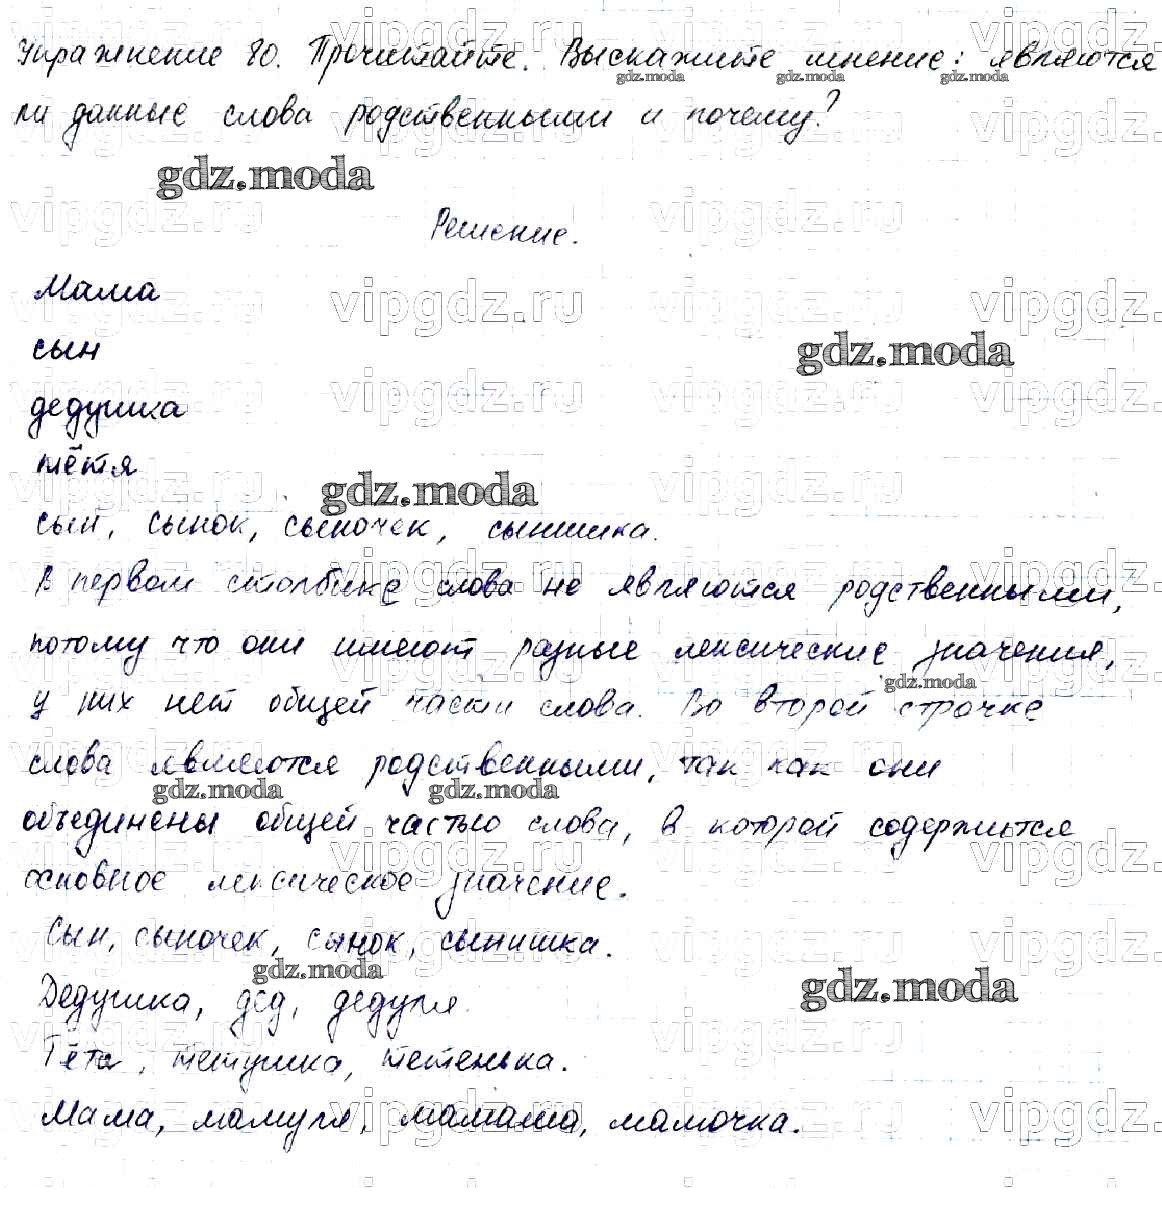 Упражнение 80. Прочитайте. Выскажите мнение: являются
ли данные слова родственными и почему?
gdz.moda
Решение.
Мама
сын
дедушка
тётя
сын, сынок, сыночек, сынишка.
В первом столбике слова не являются родственными,
потому что они имеют разные лексические значения,
у них нет общей части слова. Во второй строчке
слова являются родственными, так как они
объединены общей частью слова, в которой содержится
основное лексическое значение.
Сын, сыночек, сынок, сынишка.
Дедушка, дед, дедуля.
Тётя, тетушка, тетенька.
Мама, мамуля, мамаша, мамочка.
vipgdz.ru